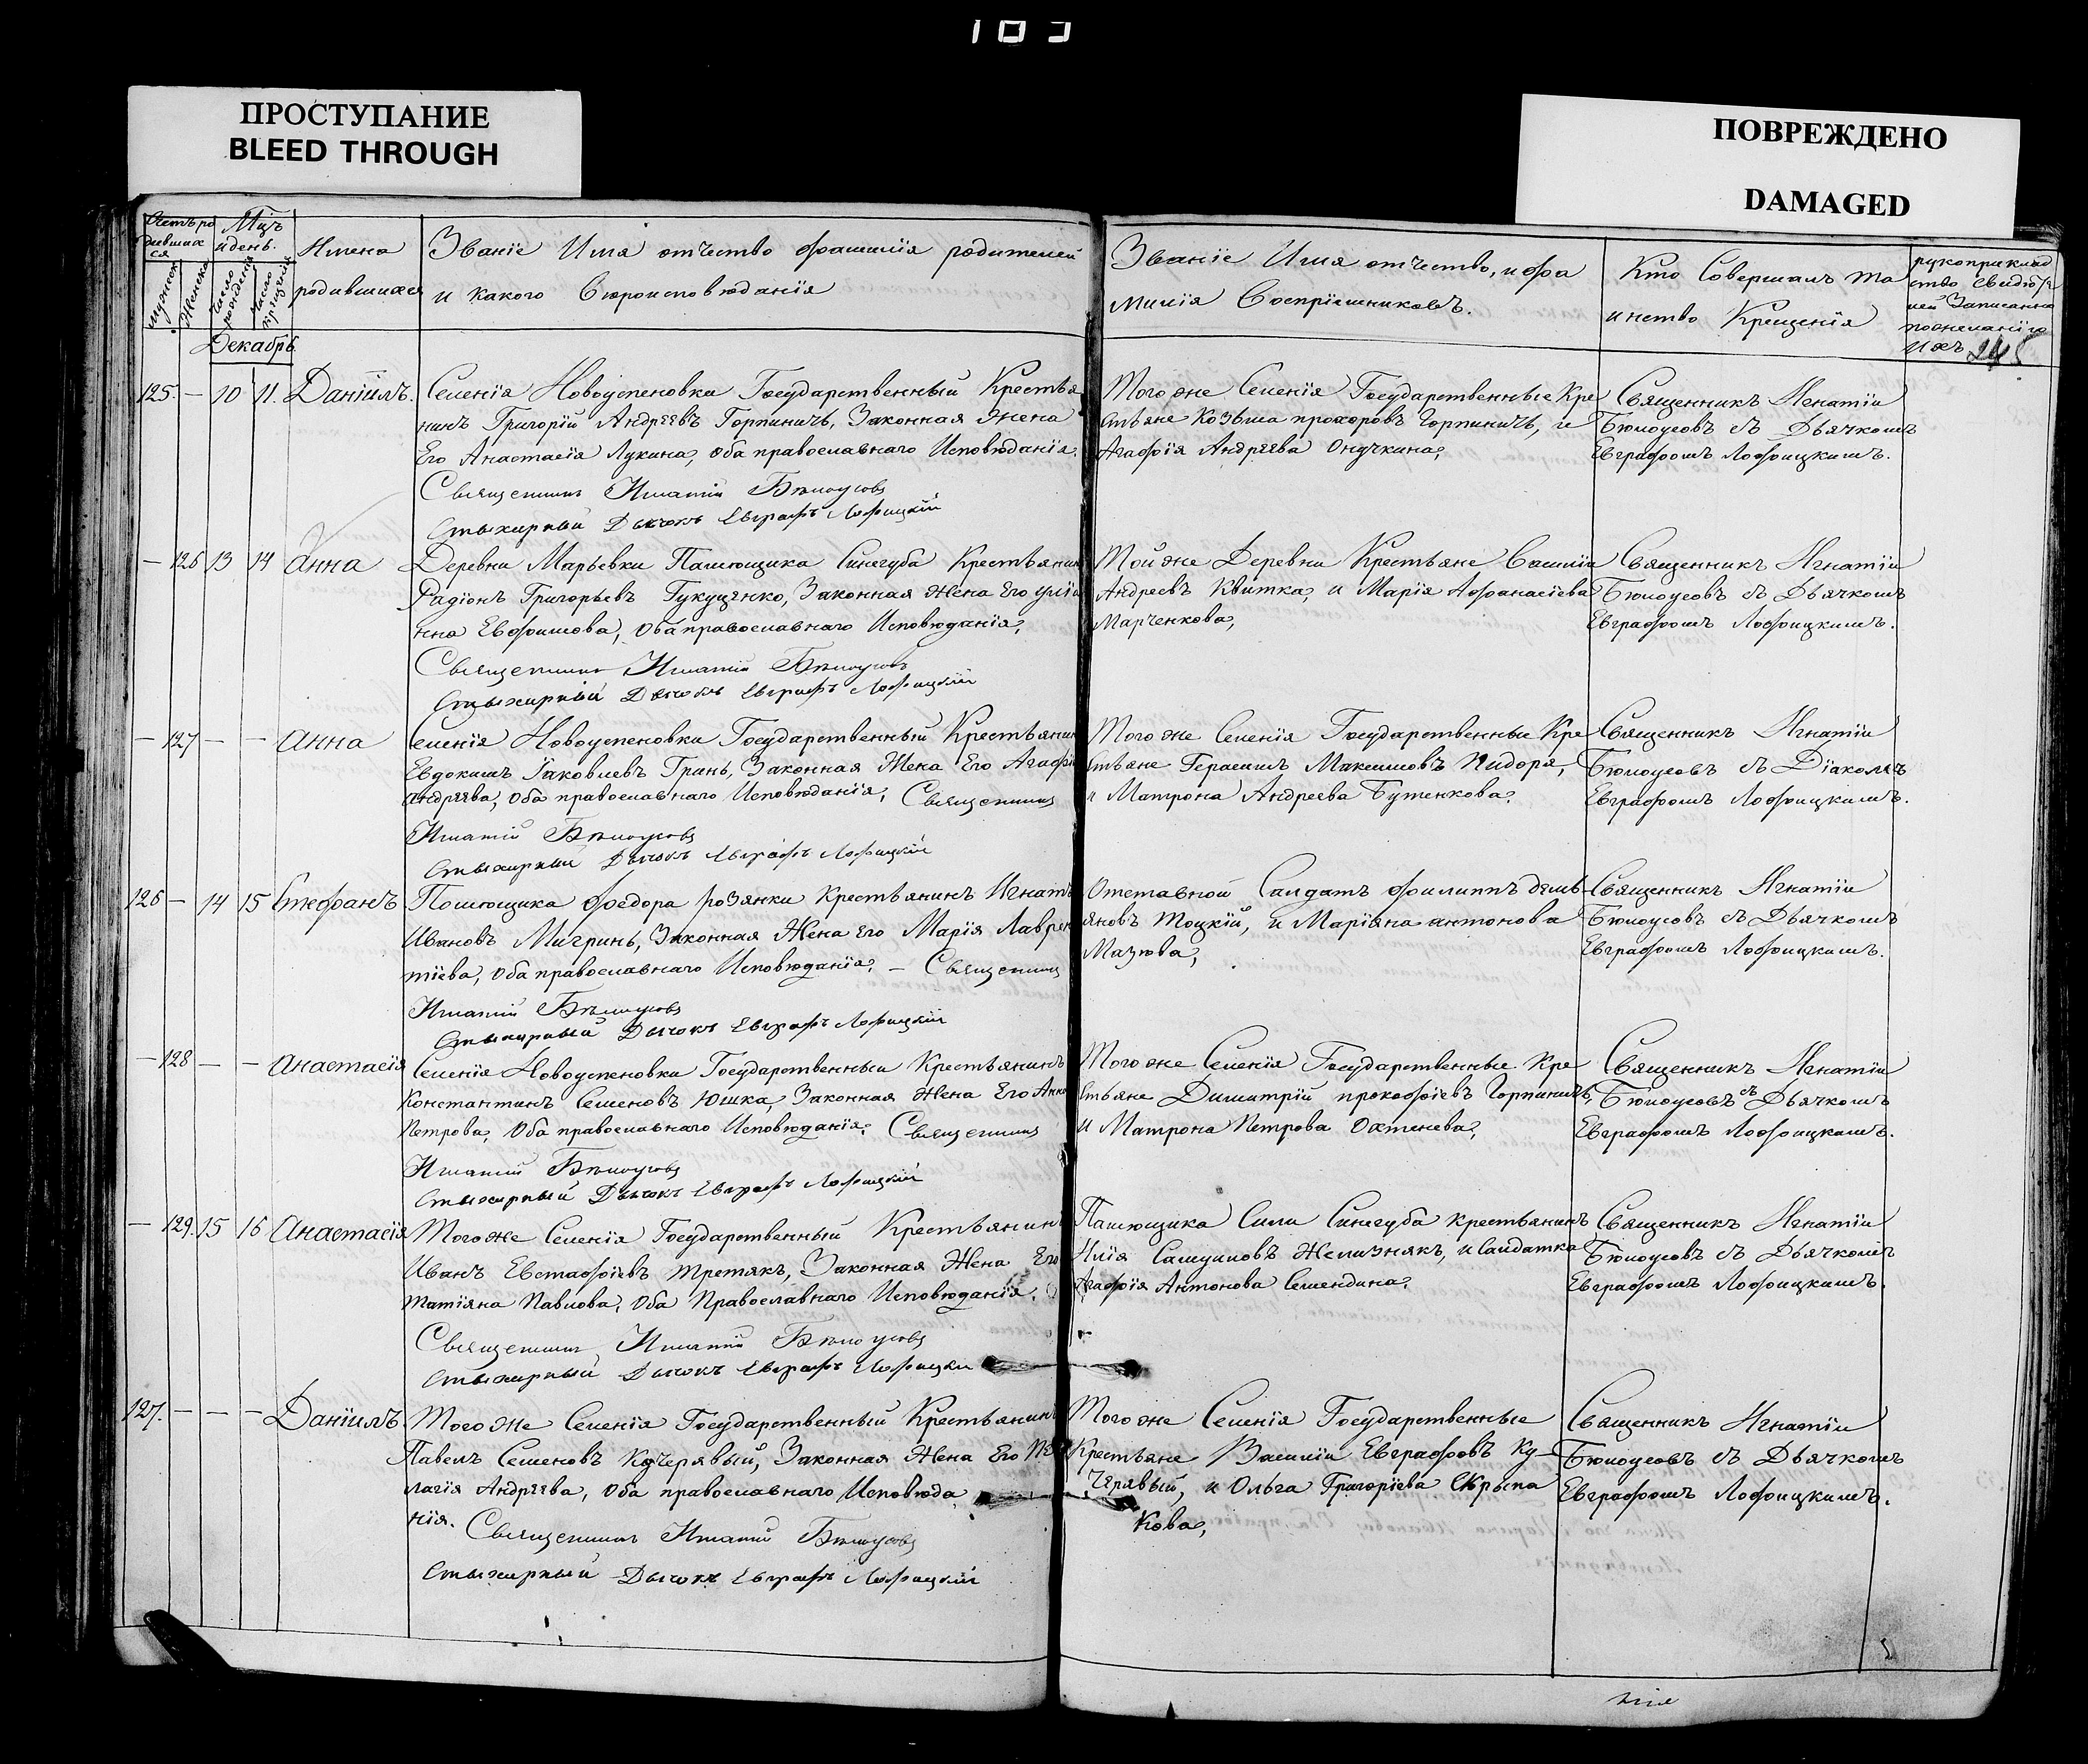 103
ПРОСТУПАНИЕ
BLEED THROUGH
ПОВРЕЖДЕНО
DAMAGED
Счетъ ро
дивших
ся
мужеск
женска
Мцъ
и день.
Число
рожденія
Число
крещенія
Имена
родившихся
Званіе Имя отчество фамилія родителей
и какого вѣроисповѣданія
Званіе Имя отчество, и фа
милія Воспріемниковъ.
Кто Совершалъ та
инство Крещенія
рукоприклад
ство свидѣте
лей Записанно
по желанію
ихъ
245
Декабрь
125. — 10 11. Даніилъ.
Селенія Новоуспеновки Государственный Крестья
нинъ Григорій Андреевъ Горпиничъ, Законная Жена
Его Анастасія Лукина, оба православнаго Исповѣданія.
Священникъ Игнатій Бѣлоусовъ
Стыхарный Дьячокъ Евграфъ Лофицкій
Того же Селенія Государственные Кре
стьяне Козьма прохоровъ Горпиничъ, и
Агафія Андреева Онучкина,
Священникъ Игнатіи
Бѣлоусовъ съ Дьячкомъ
Евграфомъ Лофицкимъ.
— 126 13 14 Анна
Деревни Марьевки Помѣщика Синегуба Крестьянин
Радіонъ Григорьевъ Гукущенко, Законная Жена Его Уліа
нна Евфимова, Оба православнаго Исповѣданія,
Священникъ Игнатій Бѣлоусовъ
Стыхарный Дьячокъ Евграфъ Лофицкій
Той же Деревни Крестьяне Василіи
Андреевъ Квитка, и Марія Афанасіева
Марченкова,
Священникъ Игнатіи
Бѣлоусовъ съ Дьячкомъ
Евграфомъ Лофицкимъ.
— 127 — — Анна
Селенія Новоуспеновки Государственный Крестьянин
Евдокимъ Яковлевъ Грань, Законная Жена Его Агафи
Андреева, Оба православнаго Исповѣданія, Священникъ
Игнатій Бѣлоусовъ
Стыхарный Дьячокъ Евграфъ Лофицкій
Того же Селенія Государственные Кре
стьяне Герасимъ Максимовъ Пидоря,
и Матрона Андреева Бутенкова.
Священникъ Игнатіи
Бѣлоусовъ съ Діакомъ
Евграфомъ Лофицкимъ.
126 — 14 15 Стефанъ
Помѣщика Федора розянки Крестьянинъ Игнатъ
Ивановъ Мигринь, Законная Жена Его Марія Лаврен
тіева, Оба православнаго Исповѣданія. — Священникъ
Игнатій Бѣлоусовъ
Стыхарный Дьячокъ Евграфъ Лофицкій
Отставной Салдатъ Филиппъ демь
яновъ Тоцкій, и Маріяна антонова
Мазюва,
Священникъ Игнатіи
Бѣлоусовъ съ Дьячкомъ
Евграфомъ Лофицкимъ.
— 128 — — Анастасія
Селенія Новоуспеновки Государственныи Крестьянинъ
Константинъ Семеновъ Юшка, Законная Жена Его Анна
Петрова, Оба православнаго Исповѣданія. Священникъ
Игнатій Бѣлоусовъ
Стыхарный Дьячокъ Евграфъ Лофицкій
Того же Селенія Государственные Кре
стьяне Димитрій прокофіевъ Горпиничъ,
и Матрона Петрова Охтенева,
Священникъ Игнатіи
Бѣлоусовъ съ Дьячкомъ
Евграфомъ Лофицкимъ.
— 129. 15 16 Анастасія
Того же Селенія Государственный Крестьянинъ
Иванъ Евстафіевъ Третякъ, Законная Жена Его
Татіяна Павлова, Оба Православнаго Исповѣданія.
Священникъ Игнатій Бѣлоусовъ
Стыхарный Дьячокъ Евграфъ Лофицки
Помѣщика Силы Синегуба крестьянинъ
Илія Самуиловъ Желизнякъ, и Салдатка
Агафія Антонова Семендина.
Священникъ Игнатіи
Бѣлоусовъ съ Дьячкомъ
Евграфомъ Лофицкимъ.
127. — — — Даніилъ
Того же Селенія Государственный Крестьянинъ
Павелъ Семеновъ Кучерявый, Законная Жена Его Пе
лагія Андреева, Оба православнаго Исповѣда
нія. Священникъ Игнатій Бѣлоусовъ
Стыхарный Дьячокъ Евграфъ Лофицкій
Того же Селенія Государственные
Крестьяне Василіи Евграфовъ Ку—
черявый, и Ольга Григоріева Скрыпа
кова,
Священникъ Игнатіи
Бѣлоусовъ съ Дьячкомъ
Евграфомъ Лофицкимъ.